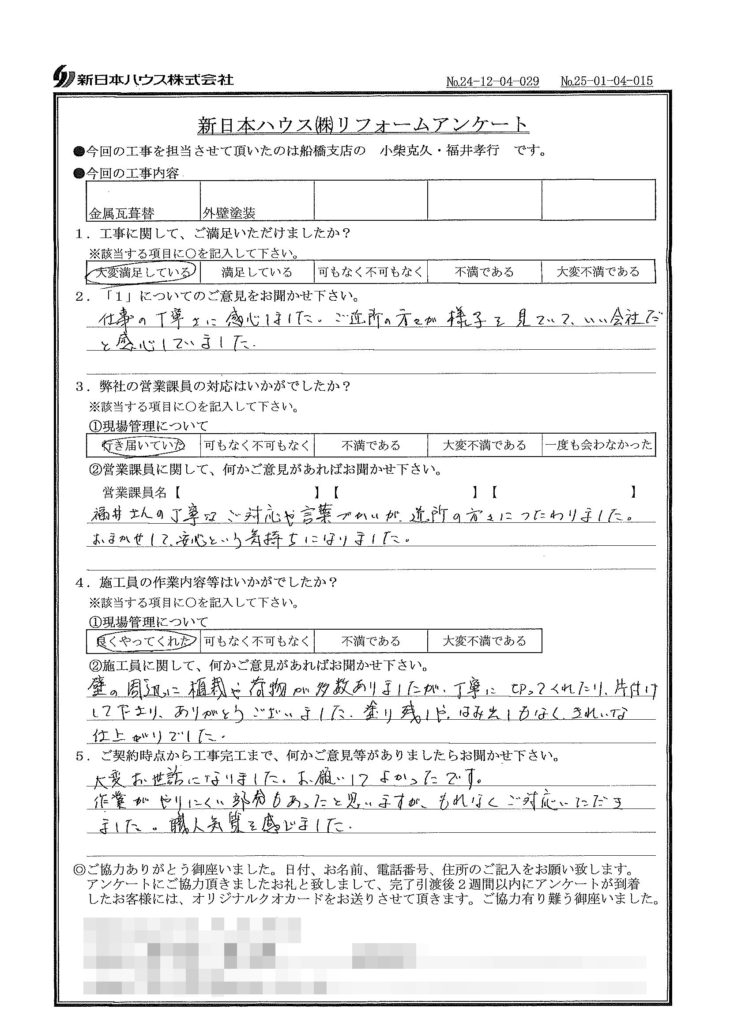 新日本ハウス株式会社 №24-12-04-029 №25-01-04-015
新日本ハウス㈱リフォームアンケート
●今回の工事を担当させて頂いたのは船橋支店の 小柴克久・福井孝行 です。
●今回の工事内容
金属瓦葺替 外壁塗装
1．工事に関して、ご満足いただけましたか？
※該当する項目に○を記入して下さい。
大変満足している 満足している 可もなく不可もなく 不満である 大変不満である
2．「1」についてのご意見をお聞かせ下さい。
仕事の丁寧さに感心しました。ご近所の方々が様子を見ていて、いい会社だ
と感心していました.
3．弊社の営業課員の対応はいかがでしたか？
※該当する項目に○を記入して下さい。
①現場管理について
行き届いていた 可もなく不可もなく 不満である 大変不満である 一度も会わなかった
②営業課員に関して、何かご意見があればお聞かせ下さい。
営業課員名【 】【 】【 】
福井さんの丁寧なご対応や言葉づかいが、近所の方々につたわりました。
おまかせして、安心という気持ちになりました。
4．施工員の作業内容等はいかがでしたか？
※該当する項目に○を記入して下さい。
①現場管理について
良くやってくれた 可もなく不可もなく 不満である 大変不満である
②施工員に関して、何かご意見があればお聞かせ下さい。
壁の周辺に植栽や荷物が多数ありましたが、丁寧にやってくれたり、片付け
して下さり、ありがとうございました. 塗り残しや、はみ出しもなく、きれいな
仕上がりでした.
5．ご契約時点から工事完工まで、何かご意見等がありましたらお聞かせ下さい。
大変お世話になりました。お願いしてよかったです。
作業がやりにくい部分もあったと思いますが、もれなくご対応いただき
ました。職人気質を感じました.
◎ご協力ありがとう御座いました。日付、お名前、電話番号、住所のご記入をお願い致します。
アンケートにご協力頂きましたお礼と致しまして、完了引渡後2週間以内にアンケートが到着
したお客様には、オリジナルクオカードをお送りさせて頂きます。ご協力有り難う御座いました。